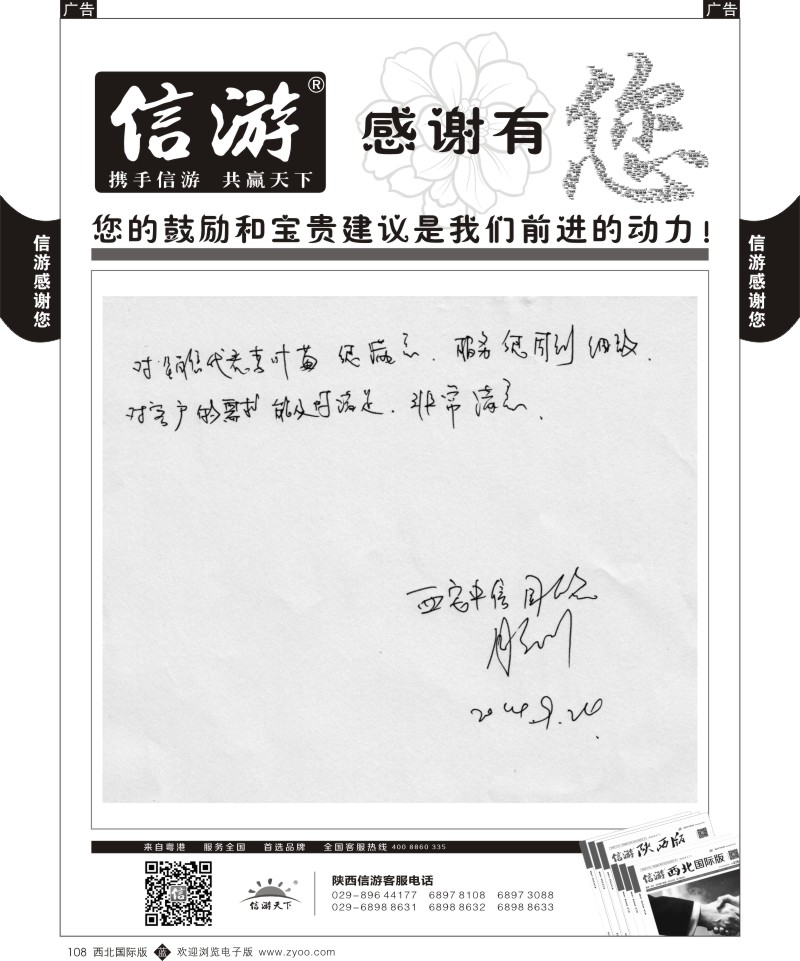 广告
广告
信游®
携手信游 共赢天下
感谢有
您
您的鼓励和宝贵建议是我们前进的动力！
信游感谢您
信游感谢您
对 代表 叶苗 您满意．服务 您周到 细致．
对客户的需求 能及时满足．非常满意．
西安中信国旅
2014.9.20
来自粤港 服务全国 首选品牌 全国客服热线 400 8860 335
信游天下
陕西信游客服电话
029-896 44177 6897 8108 6897 3088
029-6898 8631 6898 8632 6898 8633
信游 陕西版
信游 西北国际版
108 西北国际版 蓝 欢迎浏览电子版 www.zyoo.com